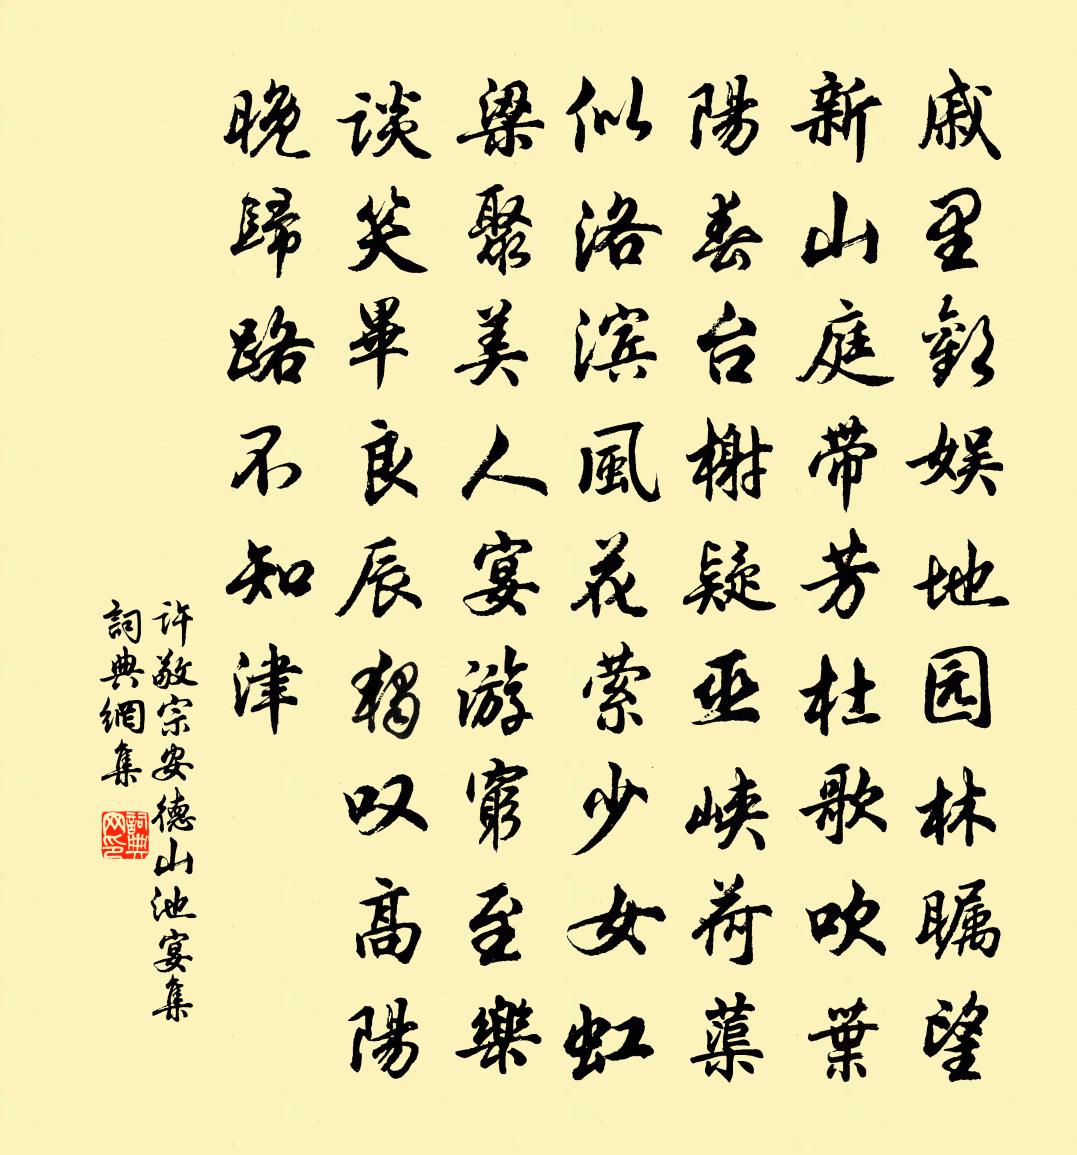 戚里歡娱地园林瞩望
新山庭带芳杜歌吹葉
陽春台榭疑巫峡荷蕖
似洛滨風花萦少女虹
梁聚美人宴游窮至樂
谈笑畢良辰獨叹高陽
晚歸路不知津
许敬宗安德山池宴集
詞典網集
詞典
网印